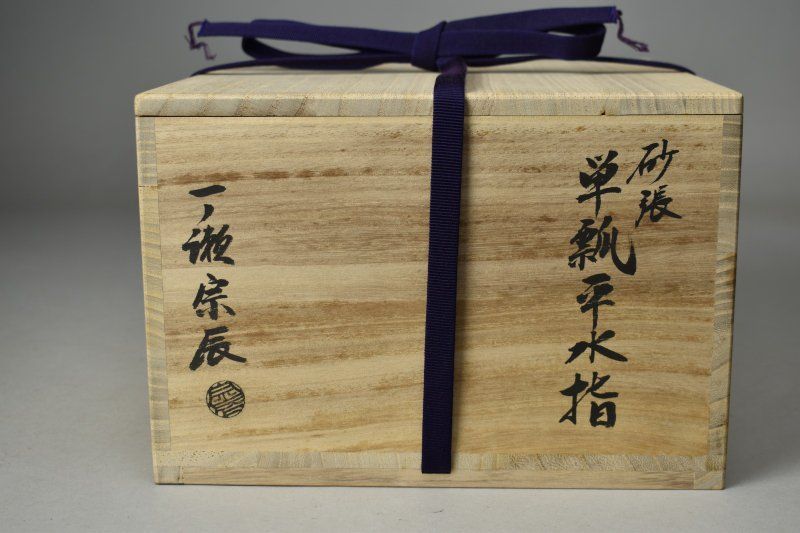 砂張
単瓢平水指
一ノ瀬宗辰